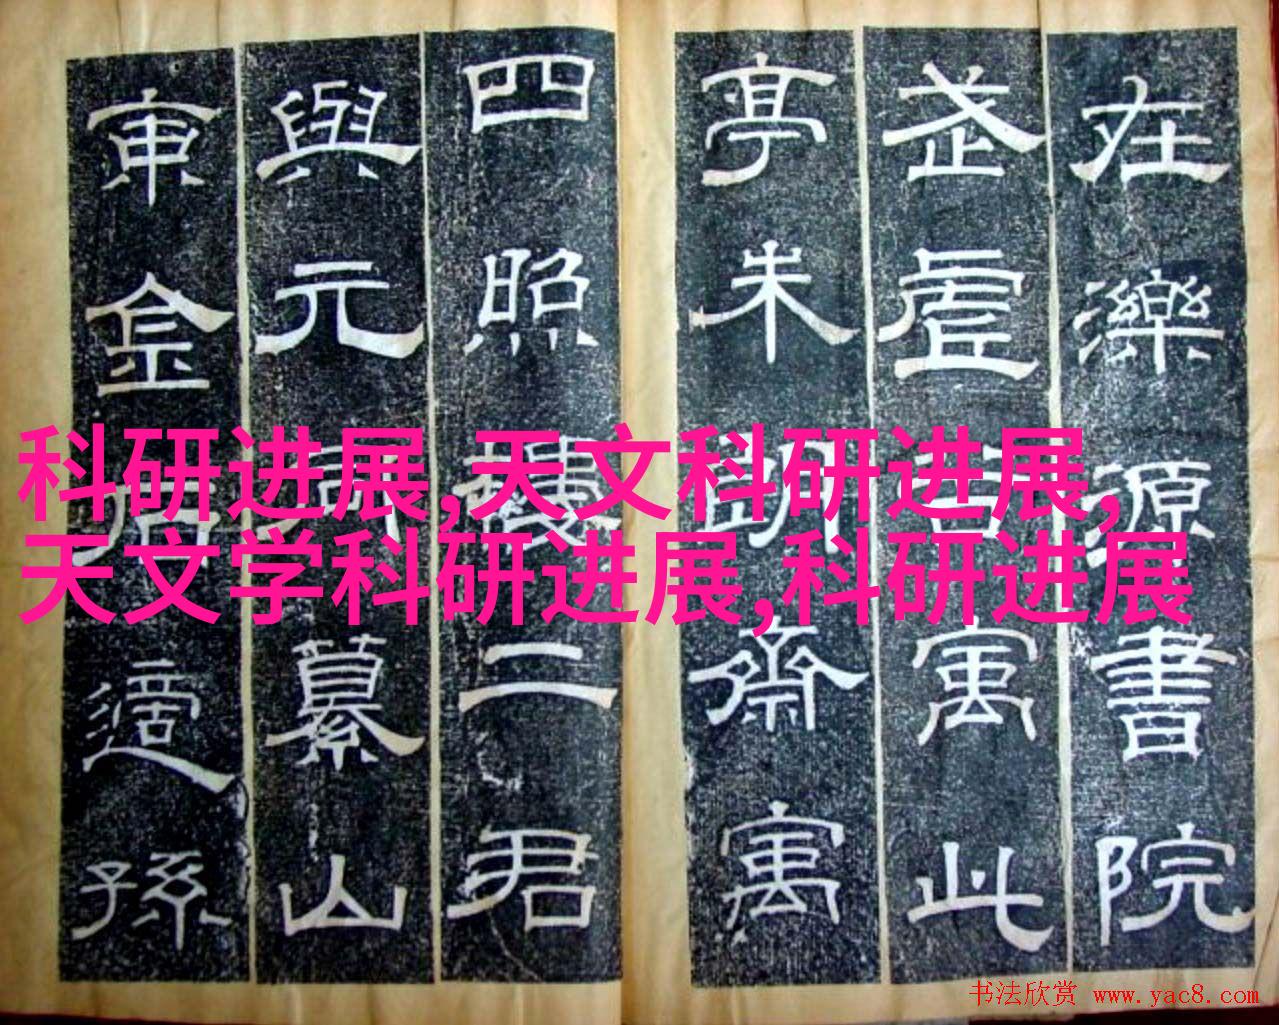 科研进展,天文科研进展,
天文学科研进展,科研进展
在濼源書院
武虚谷寓此
亭朱朗齋寓
四照樓二君
與元同纂山
東金石適孫
书法欣赏 www.yac8.com